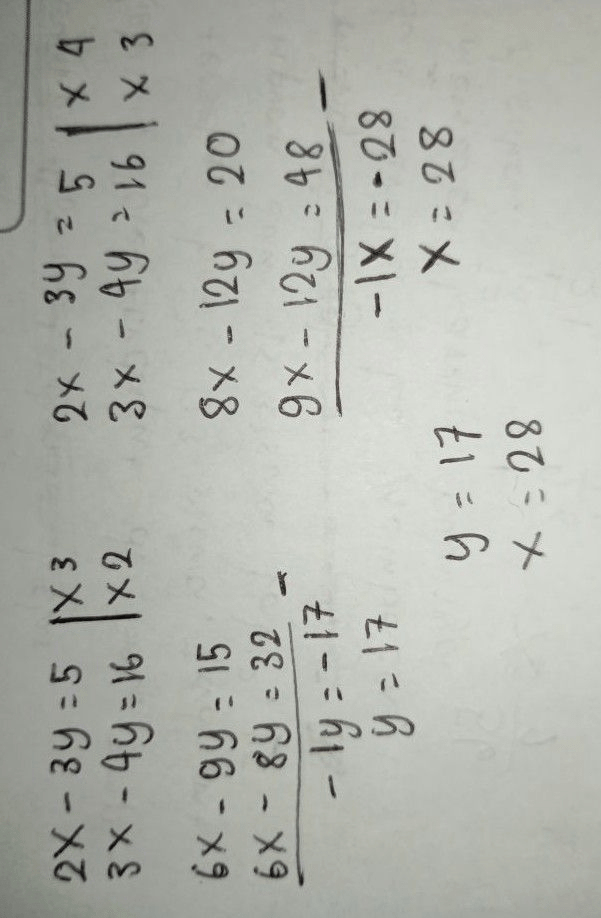 2x - 3y = 5 | x 3
3x - 4y = 16 | x 2
6x - 9y = 15
6x - 8y = 32 -
- 1y = - 17
y = 17
2x - 3y = 5 | x 4
3x - 4y = 16 | x 3
8x - 12y = 20
9x - 12y = 48 -
- 1x = - 28
x = 28
y = 17
x = 28